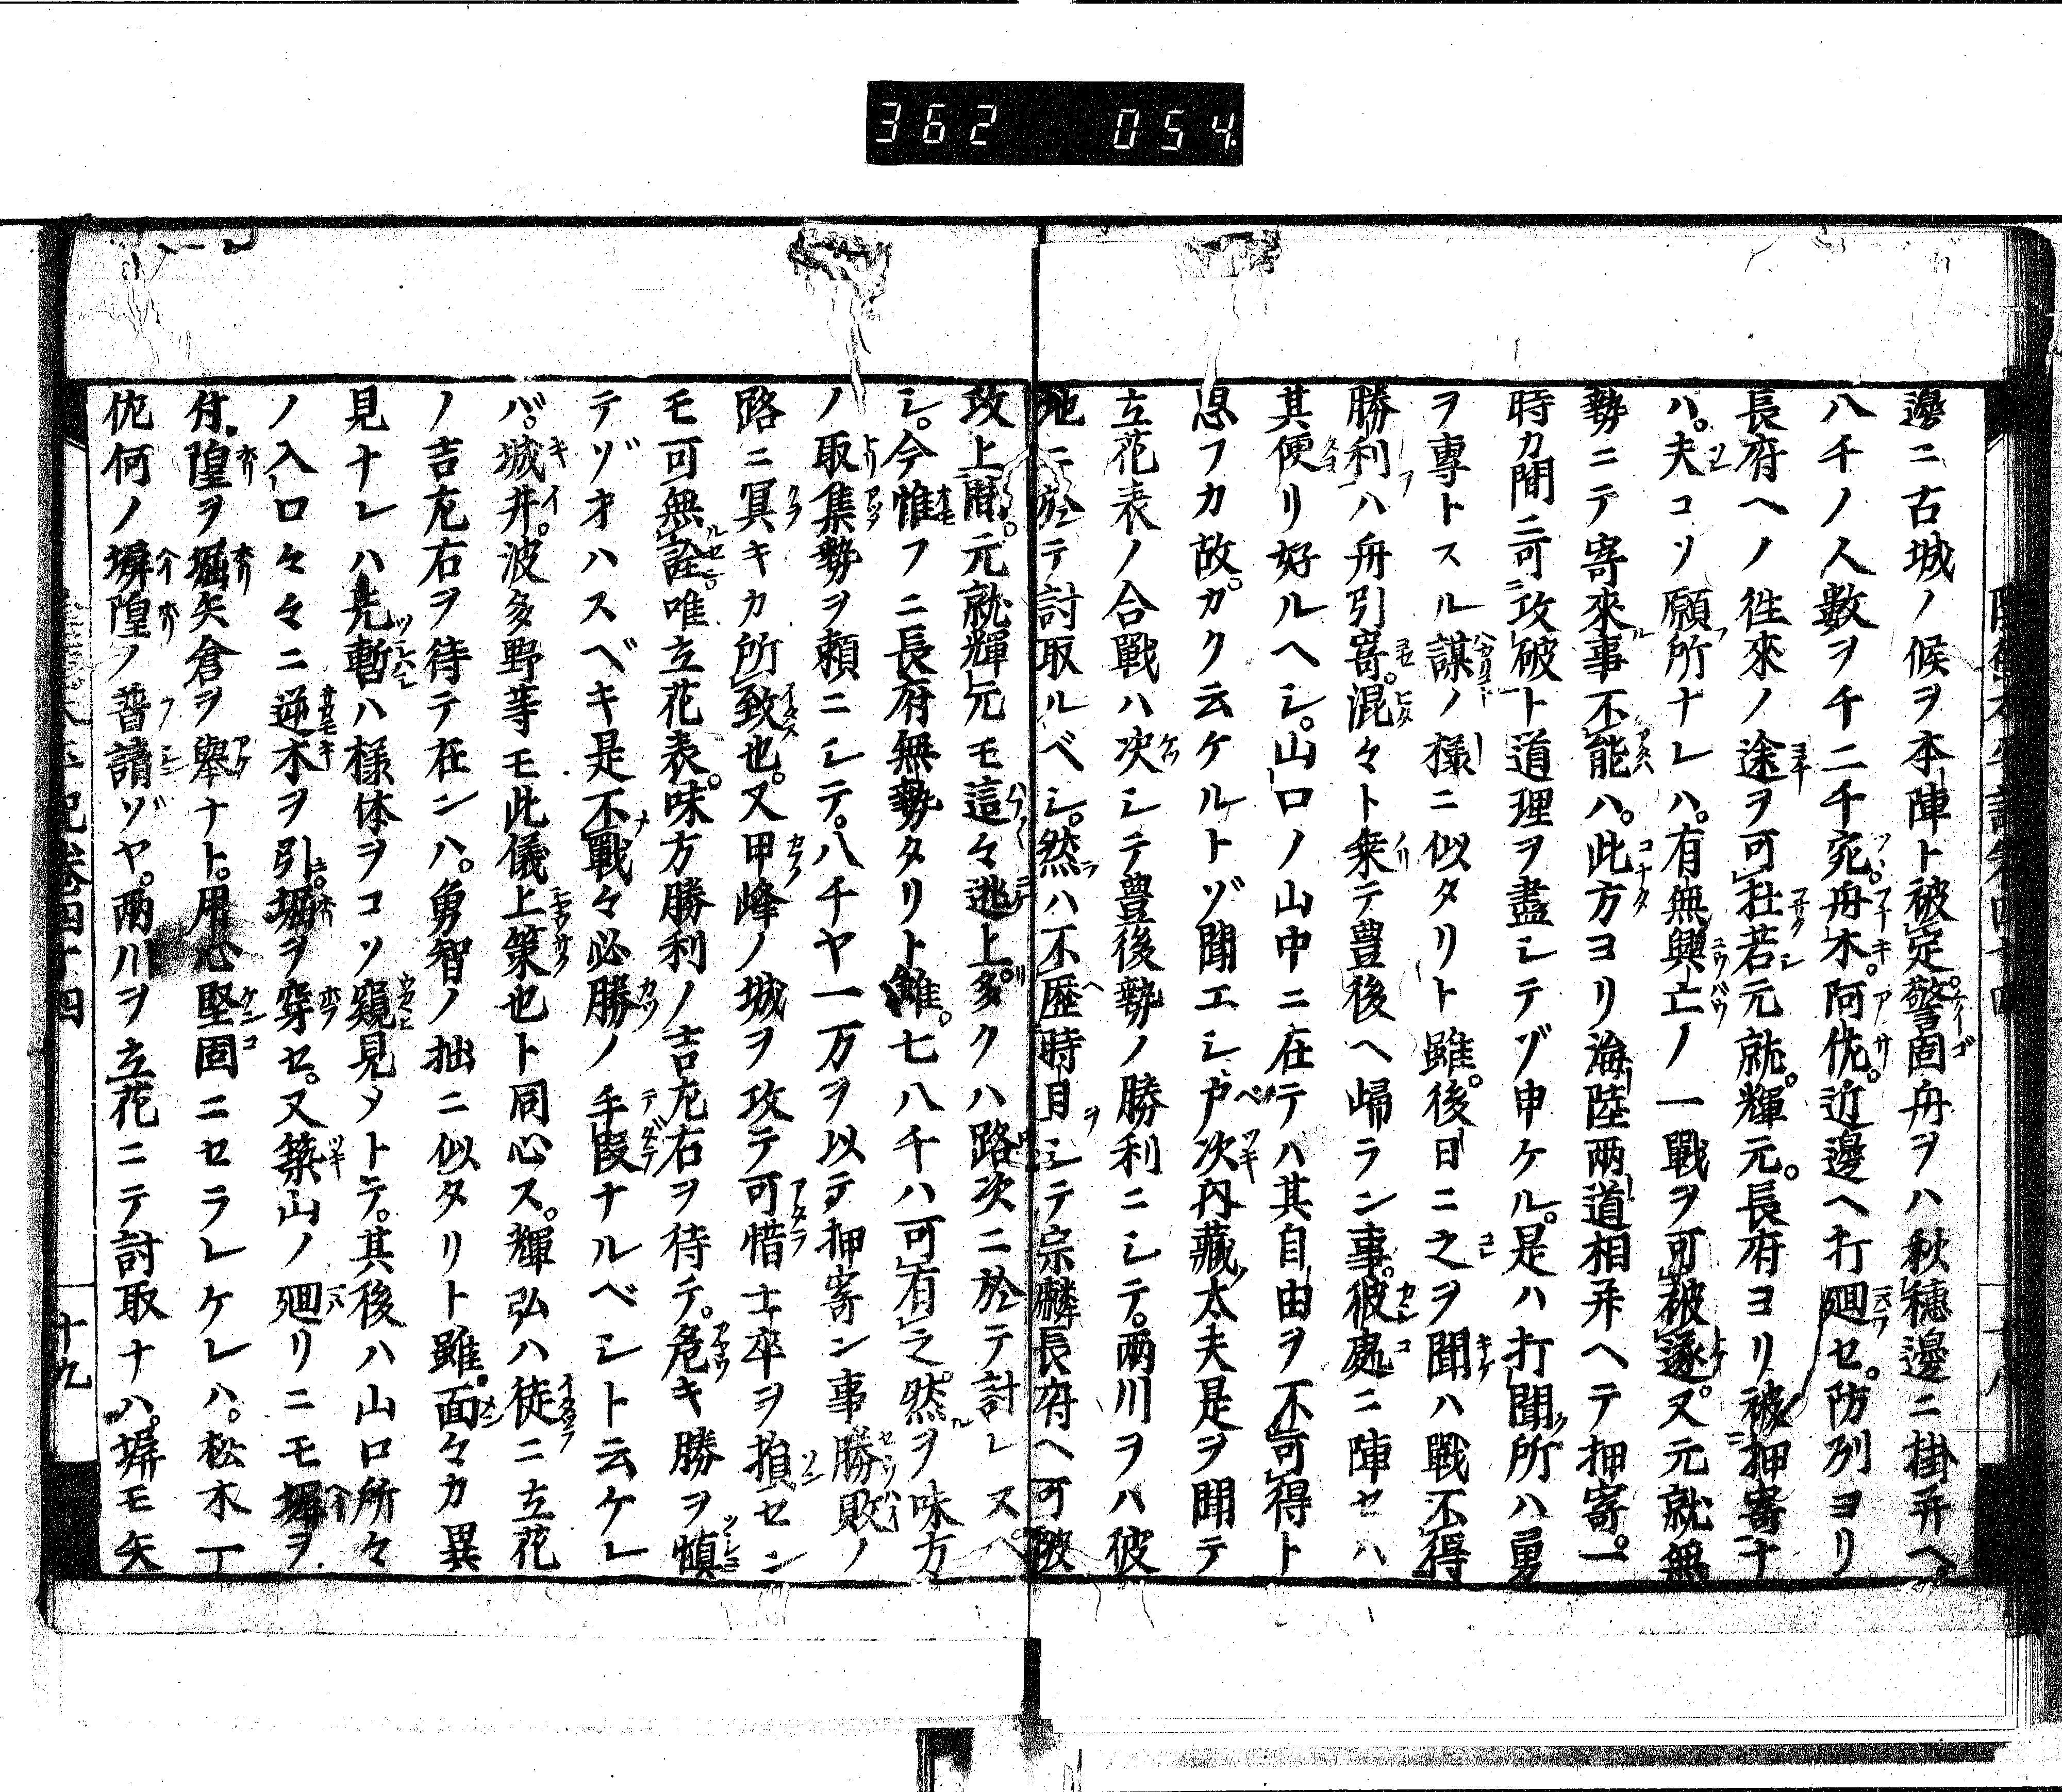 362 054
邊ニ古城ノ候ヲ本陣ト被定警固舟ヲハ秋穗邊ニ掛并ヘ
八千ノ人數ヲ千二千宛舟木。阿佐。近邊ヘ打廻セ。防列ヨリ
長府ヘノ徃來ノ途ヲ可杜若元就。輝元。長府ヨリ被押寄ナ
ハ。夫コソ願所ナレハ。有無興亡ノ一戰ヲ可被遂。又元就無
勢ニテ寄來事不能ハ。此方ヨリ海陸兩道相并ヘテ押寄。一
時カ間ニ可攻破ト道理ヲ盡シテゾ申ケル。是ハ打聞所ハ勇
ヲ專トスル謀ノ樣ニ似タリト雖。後日ニ之ヲ聞ハ戰不得
勝利ハ舟引寄。混々ト乘テ豊後ヘ歸ラン事。彼處ニ陣セハ
其便リ好ルヘシ。山口ノ山中ニ在テハ其自由ヲ不可得ト
思フカ故。カク云ケルトゾ聞エシ。戸次丹藏太夫是ヲ聞テ
立花表ノ合戰ハ决シテ豊後勢ノ勝利ニシテ。兩川ヲハ彼
地ニ於テ討取ルベシ。然ハ不歷時目シテ宗麟長府ヘ可被
攻上間。元就輝元モ這々逃上。多クハ路次ニ於テ討レスヘ
シ。今惟フニ長府無勢タリト雖。七八千ハ可有之。然ヲ味方
ノ取集勢ヲ頼ニシテ。八千ヤ一万ヲ以テ押寄ン事勝敗ノ
路ニ冥キカ所致也。又甲峰ノ城ヲ攻テ可惜士卒ヲ損セン
モ可無詮。唯立花表。味方勝利ノ吉左右ヲ待テ。危キ勝ヲ愼
テゾオハスベキ是不戰々必勝ノ手段ナルベシト云ケレ
ハ。城井。波多野等モ此儀上策也ト同心ス。輝弘ハ徒ニ立花
ノ吉左右ヲ待テ在ンハ。勇智ノ拙ニ似タリト雖。面々カ異
見ナレハ先暫ハ樣体ヲコソ窺見メトテ。其後ハ山口所々
ノ入口々々ニ逆木ヲ引。堀ヲ穿セ。又築山ノ廻リニモ塀ヲ
付。隍ヲ堀矢倉ヲ擧ナト。用心堅固ニセラレケレハ。松木一丁
佐何ノ塀隍ノ普請ゾヤ。兩川ヲ立花ニテ討取ナハ。塀モ矢
十九